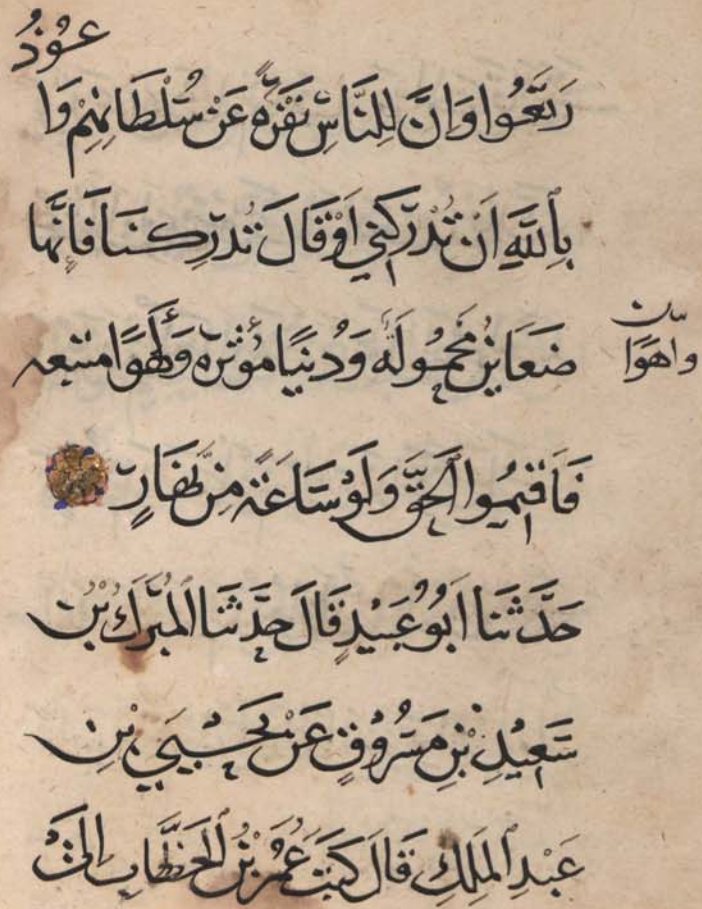 عوذ
رَتَعُوا وَاِنَّ لِلنَّاسِ نَفْرَةً عَنْ سُلْطَانِهِمْ وَا
بِاللهِ اَنْ تُدْرِكَنِي اَوْ قَالَ تُدْرِكَنَا فَاِنَّهَا
ضَغَايِنُ مَحْمُولَةٌ وَدُنْيَا مُؤْثَرَه وَأَهْوَا متبعه
واهوَا
فَاَقِيمُوا الْحَقَّ وَلَوْ سَاعَةً مِنْ نَهَارٍ
حَدَّثَنَا اَبُو عُبَيْدٍ قَالَ حَدَّثَنَا الْمُبٰرَكُ بْنُ
سَعِيدِ بْنِ مَسْرُوقٍ عَنْ يَحْيَي بْنِ
عَبْدِ الْمَلِكِ قَالَ كَتَبَ عُمَرُ بْنُ الْخَطَّابِ اِلَى